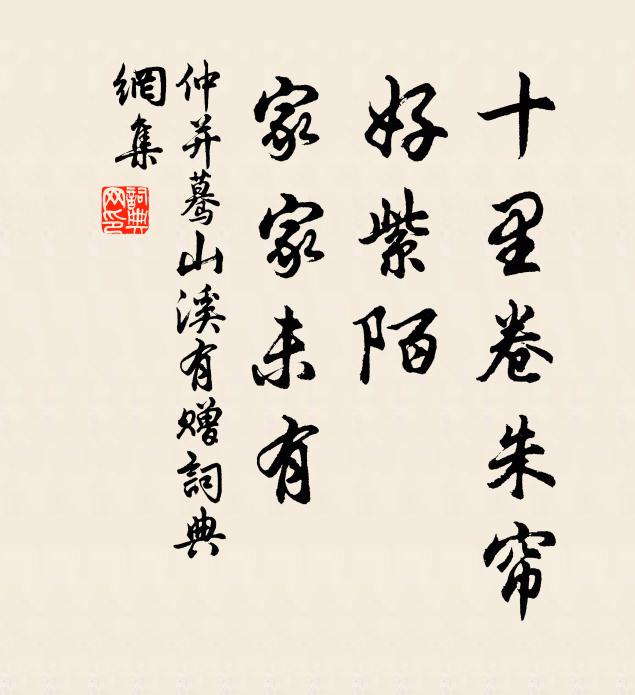 十里卷朱帘
好紫陌
家家未有
仲并蓦山溪有赠词典
網集
詞典
网印